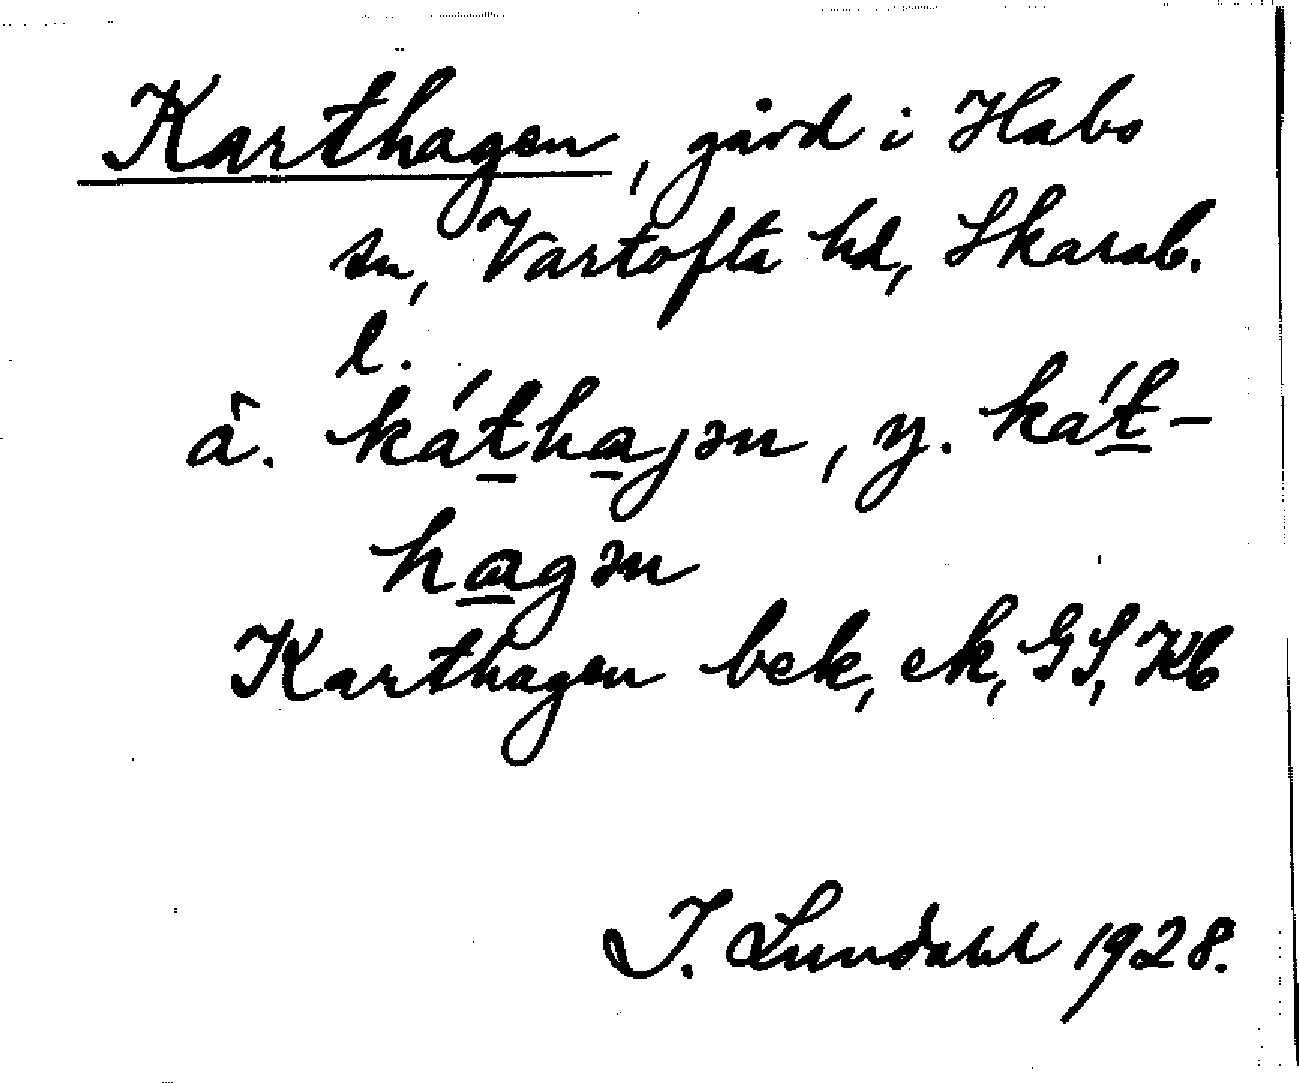 Karthagen, gård i Habo
sn, Vartofta hd, Skarab.
l.
ä. káthajən, y. kát-
hagən
Karthagen bek, ek, GS, Kb
I. Lundahl 1928.